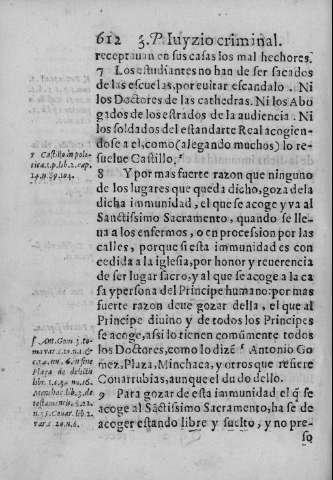 612 3.P. Iuyzio criminal.
receptauan en sus casas los mal hechores.
7 Los estudiantes no han de ser sacados
de las escuelas, por euitar escandalo. Ni
los Doctores de las cathedras. Ni los Abo
gados de los estrados de la audiencia. Ni
los soldados del estandarte Real acogien-
dose a el, como (alegando muchos) lo re-
suelue Castillo.
8 Y por mas fuerte razon que ninguno
de los lugares que queda dicho, goza de la
dicha immunidad, el que se acoge y va al
Sanctissimo Sacramento, quando se lle-
ua a los enfermos, o en procession por las
calles, porque si esta immunidad es con
cedida a la iglesia, por honor y reuerencia
de ser lugar sacro, y al que se acoge a la ca
sa y persona del Principe humano: por mas
fuerte razon deue gozar della, el que al
Principe diuino y de todos los Principes
se acoge, assi lo tienen comũmente todos
los Doctores, como lo dizẽ Antonio Go
mez, Plaza, Minchaca, y otros que refiere
Couarrubias, aunque el du do dello.
9 Para gozar de esta immunidad el q̃ se
acoge al Sãctissimo Sacramento, ha se de
acoger estando libre y suelto, y no pre-
so
r Castillo in
lib. 2. cap.
14. n. 89. 104.
s Ant. Gom. 3. to
Plaza de delictis
lib. 1. c.
Menchac. lib. 3. de
Couar. lib. 2.
var. c. 20. n. 6.